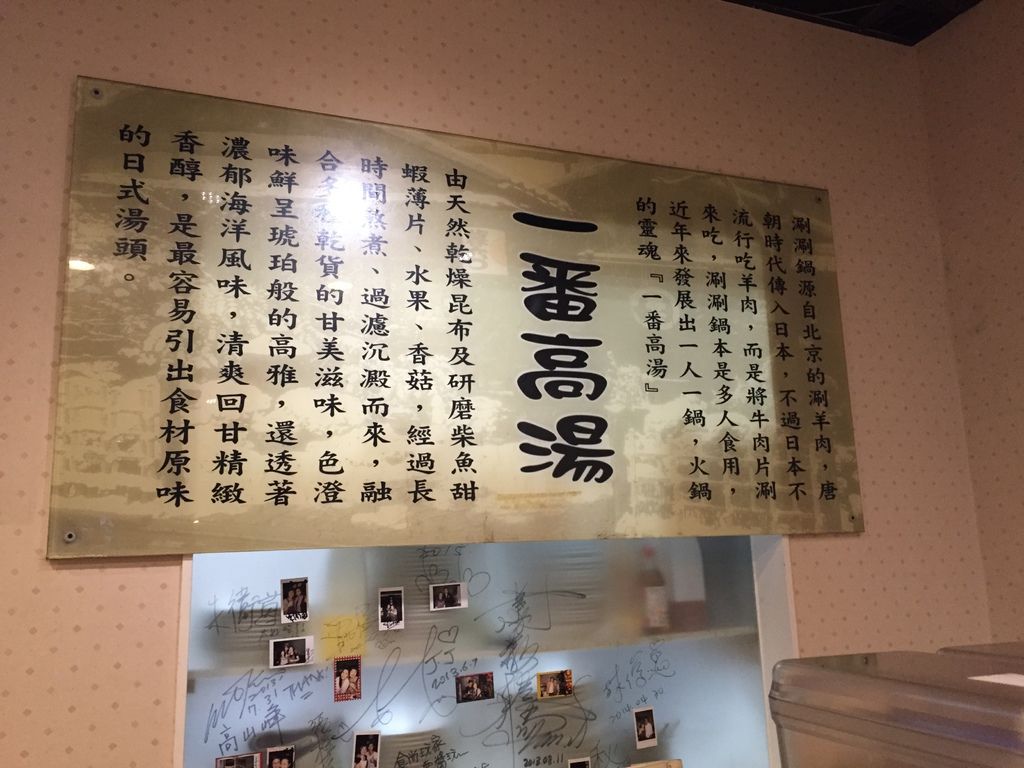 涮涮鍋源自北京的涮羊肉，唐
朝時代傳入日本，不過日本不
流行吃羊肉，而是將牛肉片涮
來吃，涮涮鍋本是多人食用，
近年來發展出一人一鍋，火鍋
的靈魂『一番高湯』
一番高湯
由天然乾燥昆布及研磨柴魚甜
蝦薄片、水果、香菇，經過長
時間熬煮、過濾沉澱而來，融
合多種乾貨的甘美滋味，色澄
味鮮呈琥珀般的高雅，還透著
濃郁海洋風味，清爽回甘精緻
香醇，是最容易引出食材原味
的日式湯頭。
2015
JJ
2013.6.7
THANK!
7.31
高山峰
2014.04.20
2013.08.11
食尚玩家